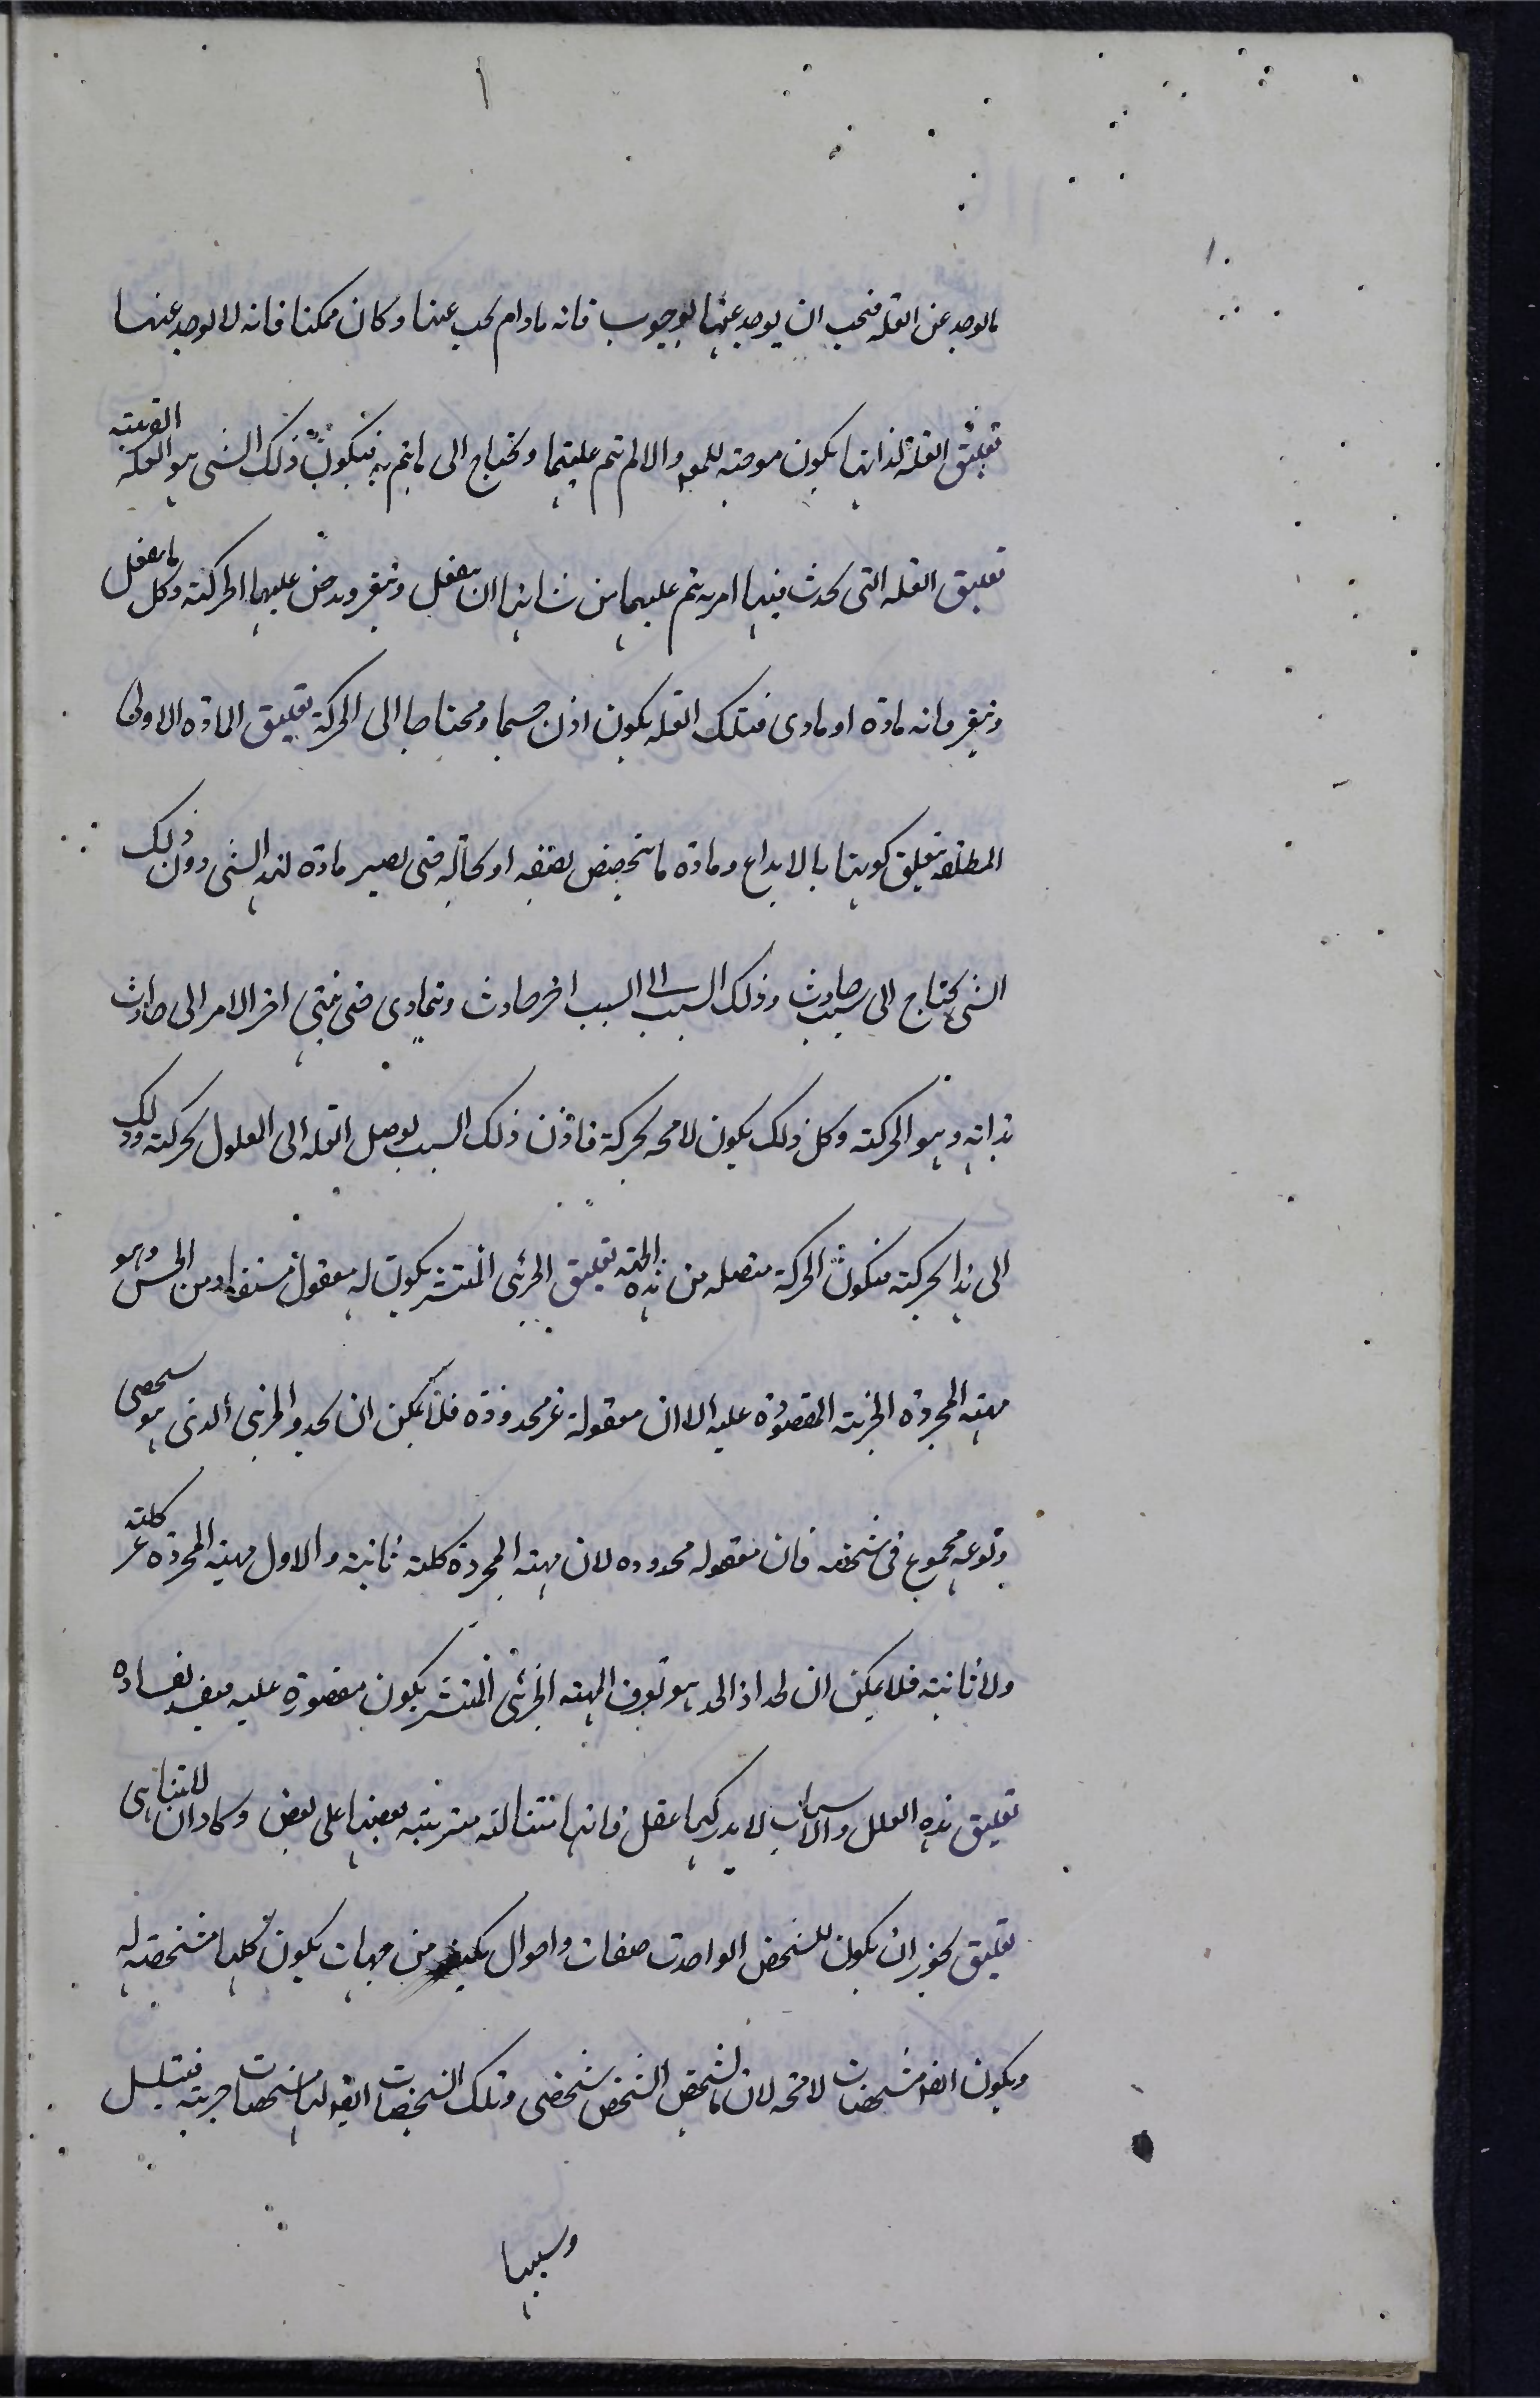 ما يوجد عن العلة فيجب ان يوجد عنها بوجوب فانه مادام لم يجب عنها وكان ممكنا فانه لا يوجد عنها
تعليق العلة لذاتها يكون موجبة للمعلول والا لم تتم عليتها وتحتاج الى ما يتم به فيكون ذلك الشى هو العلة القريبة
تعليق العلة التى يحدث فيها امر به تتم عليتها من شانها ان تنفعل وتتغير ويعرض عليها الحركة وكل ما ينفعل
ويتغير فانه مادة او مادى فتلك العلة يكون اذن جسما ومحتاجا الى الحركة تعليق المادة الاولى
المطلقة يتعلق كونها بالابداع ومادة ما يتخصص بصفة او بحالة حتى يصير مادة لهذا الشى دون ذلك
الشى يحتاج الى سبب حادث وذلك السبب الى السبب اخر حادث ويتمادى حتى ينتهى اخر الامر الى حادث
بذاته وهو الحركة وكل ذلك يكون لا محة بحركة فاذن ذلك السبب يوصل العلة الى المعلول بحركته وذلك
الى هذا بحركته فيكون الحركة متصلة من هذه الجهة تعليق الجزئى المنتشر يكون له معقول مستفاد من الحس وهو
مهيته المجردة الجزئية المقصورة عليه الا ان معقوله غير محدودة فلا يمكن ان يحد والجزئى الذى هو شخصى
ونوعه مجموع فى شخصه فان معقوله محدوده لان مهيته المجردة كلية ثابتة والاول مهيته المجردة غير كلية
ولا ثابتة فلا يمكن ان يحد اذ الحد هو تعرف المهية الجزئى المنتشر يكون مقصورة عليه فيفسد بفساده
تعليق هذه العلل والاسباب لا يدركها عقل فانها متتالية مترتبة بعضها على بعض وكاد ان لا يتناهى
تعليق يجوز ان يكون للشخص الواحد صفات واحوال من جهات يكون كلها مشخصة له
ويكون ايضا مشخصات لا محة لان ما يشخص الشخص شخصى وتلك المشخصات ايضا لها مشخصات جزئية فيتسلسل
وسببها